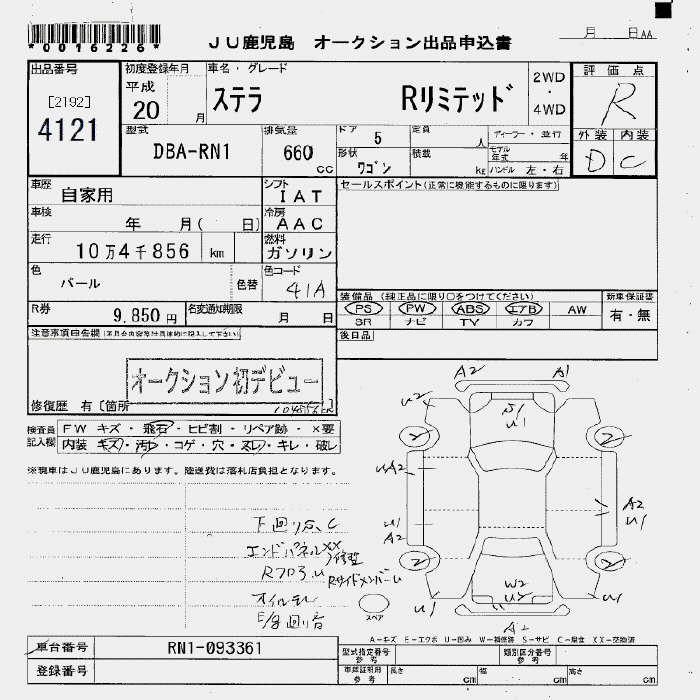 *0016226*
JU鹿児島 オークション出品申込書
月 日AA
出品番号 初度登録年月 車名・グレード 評価点
[2192] 平成 20 月 ステラ Rリミテッド 2WD・4WD R
4121
型式 排気量 ドア 5 定員 人 ディーラー・並行 外装 内装
DBA-RN1 660 cc 形状 ワゴン 積載 kg モデル年式 年 ハンドル 左・右 D C
車歴 自家用 シフト IAT セールスポイント(正常に機能するものに限ります)
車検 年 月( 日) 冷房 AAC
走行 10万4千856 km 燃料 ガソリン
色 パール 色替 色コード 41A
装備品 (純正品に限り〇をつけてください) 新車保証書
R券 9,850円 名変通知期限 月 日 PS PW ABS エアB AW 有・無
SR ナビ TV カワ
注意事項申告欄 後日品
オークション初デビュー
修復歴 有 [箇所
検査員記入欄 FW キズ・飛石・ヒビ割・リペア跡・×要
内装 キズ・汚レ・コゲ・穴・スレ・キレ・破レ
※現車はJU鹿児島にあります。陸送費は落札店負担となります。
A2 A1
U2 S1 U1
2 2
UA2
U1 A2
A2 U1
2 2
W2 U2
U1 U1
A2
スペア
下回りS、C
エンドパネルXX
Rフロア.U Rサイドメンバー U
オイルモレ
E/g 回り音
A-キズ E-エクボ U-凹み W-補修済 S-サビ C-腐食 XX-交換済
車台番号 RN1-093361 型式指定番号 参考 類別区分番号 参考
登録番号 車検証明 参考 長さ cm 幅 cm 高さ cm